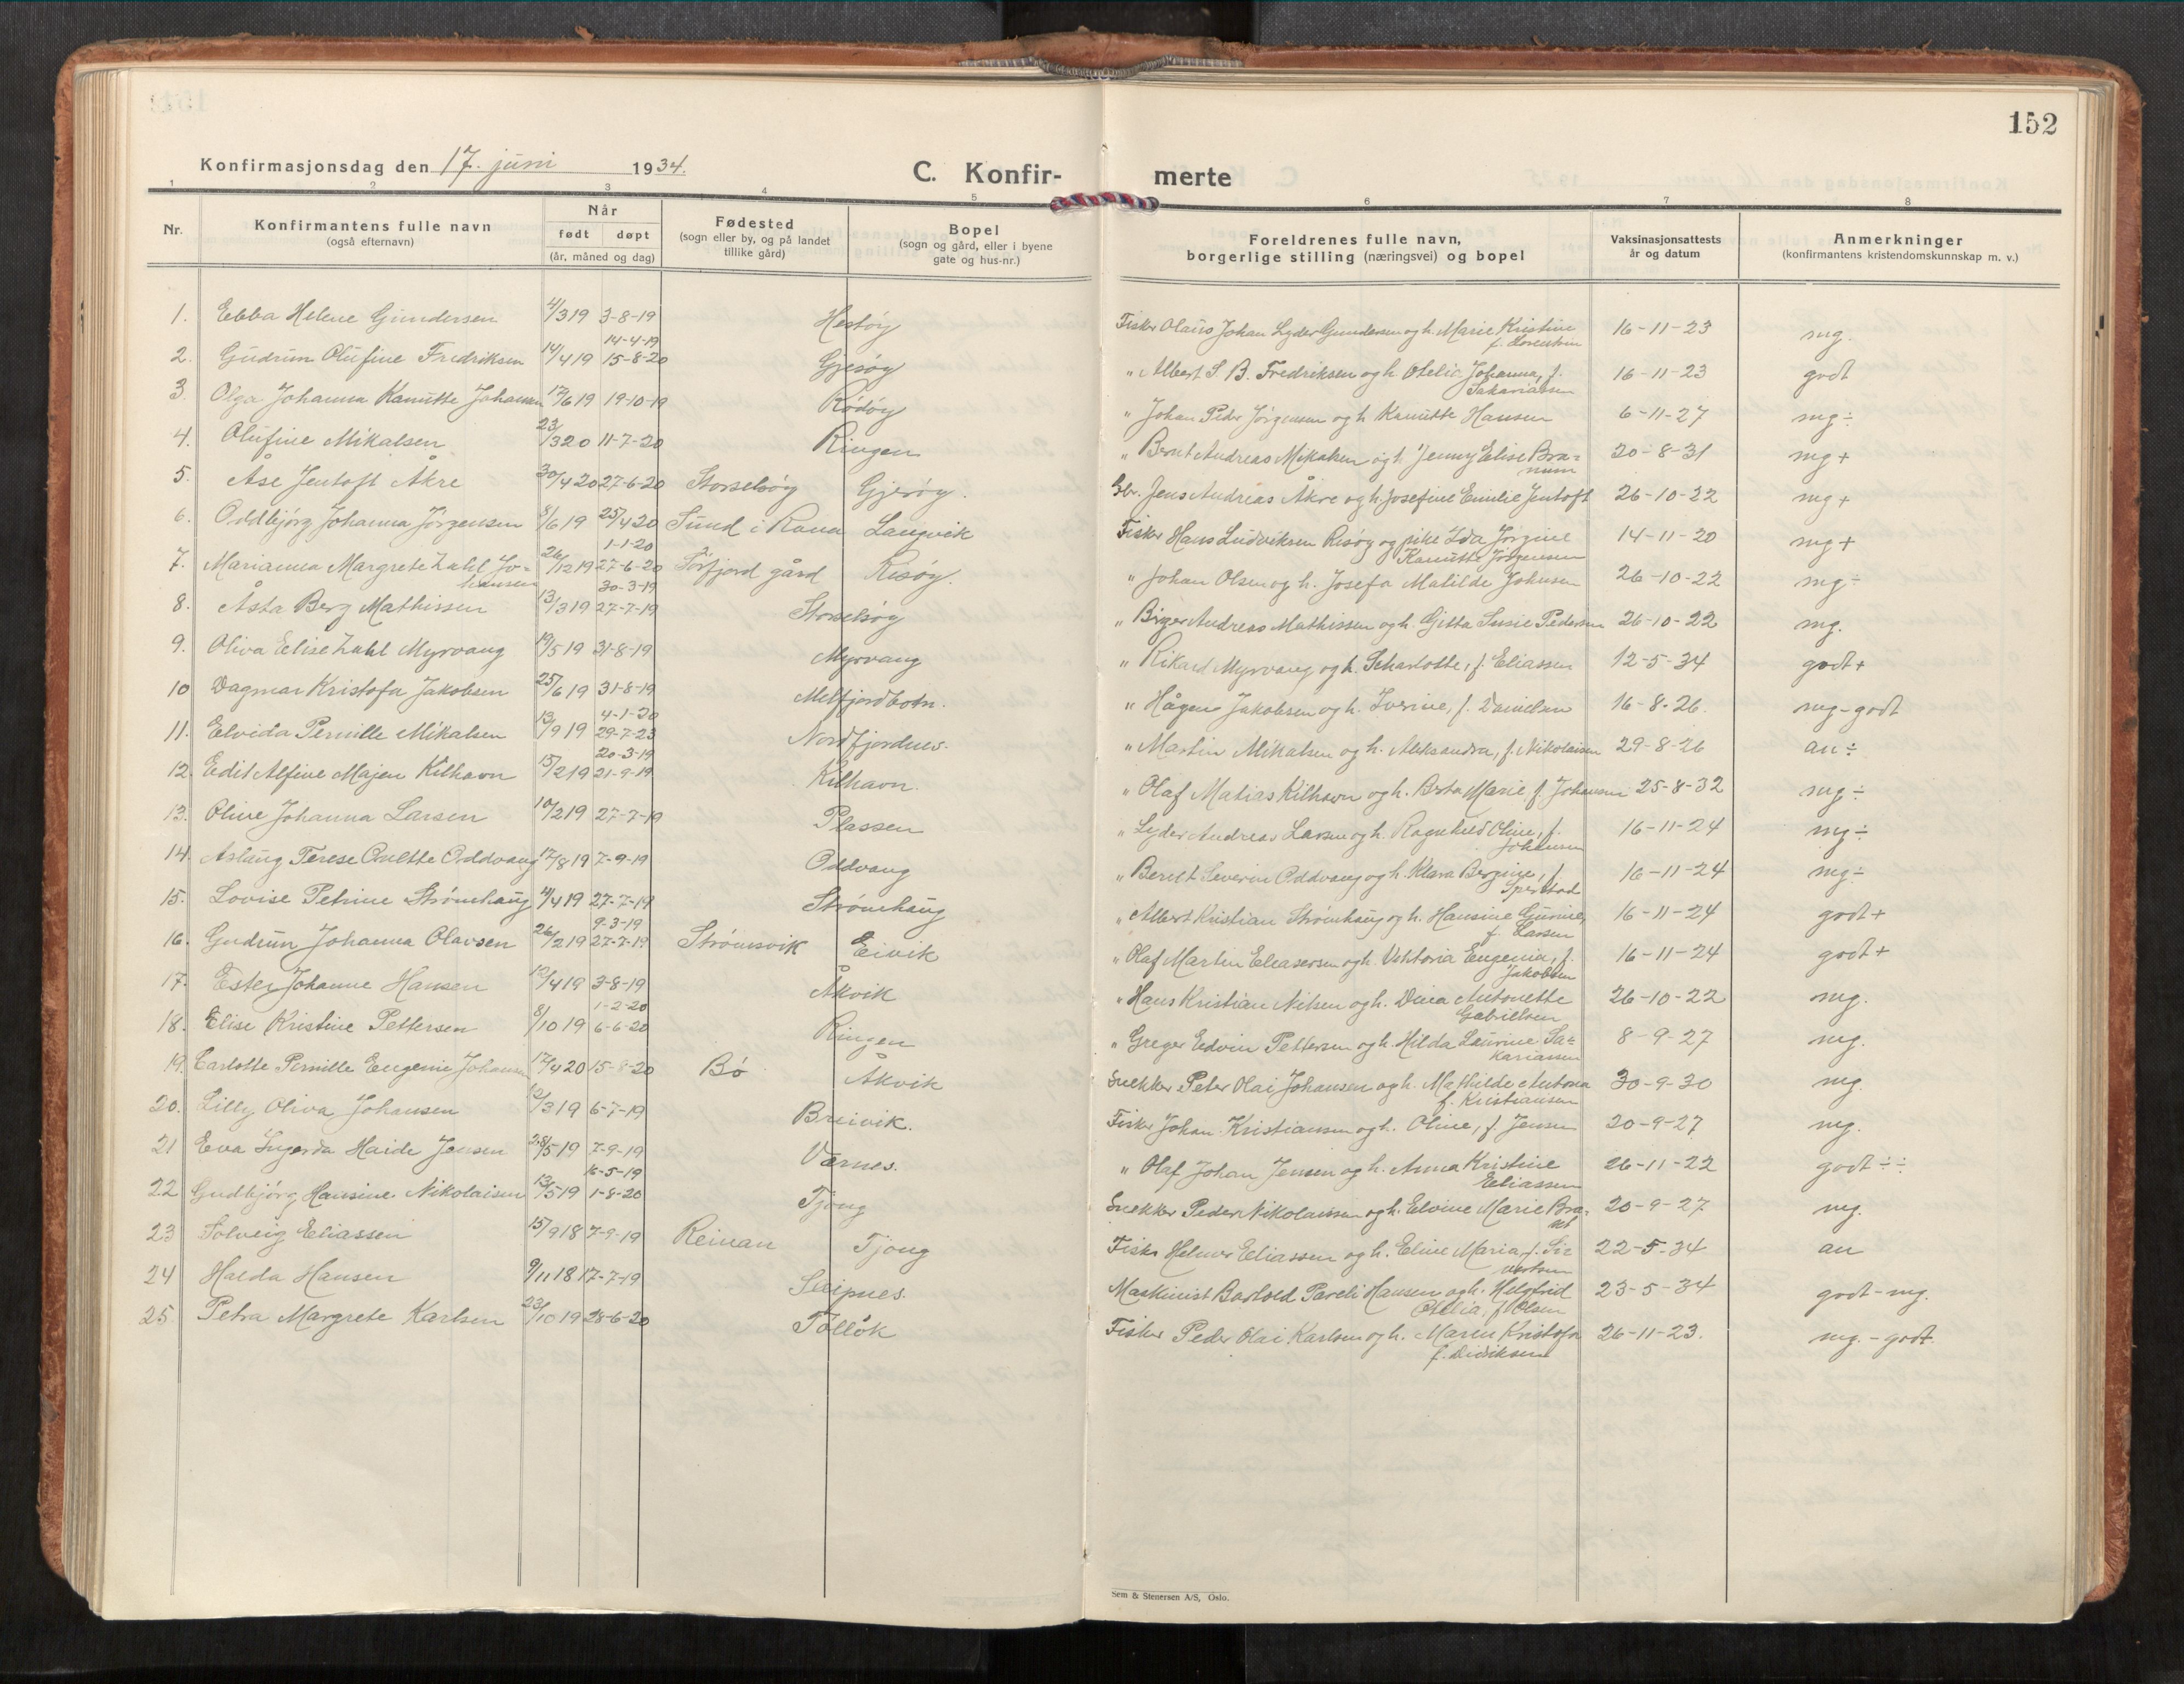 152
Konfirmasjonsdag den 17. juni 1934.
C. Konfir- merte
1 2 3 4 5 6 7 8
Nr.
Konfirmantens fulle navn
(også efternavn)
Når
født døpt
(år, måned og dag)
Fødested
(sogn eller by, og på landet
tillike gård)
Bopel
(sogn og gård, eller i byene
gate og hus-nr.)
Foreldrenes fulle navn,
borgerlige stilling (næringsvei) og bopel
Vaksinasjonsattests
år og datum
Anmerkninger
(konfirmantens kristendomskunnskap m. v.)
1. Ebba Helene Gundersen 4/3 19 3-8-19 Hestøy Fisker Olaus Johan Lyder Gundersen og h. Marie Kristine 16-11-23 mg.
2. Gudrun Olufine Fredriksen 14/4 19 14-4-19 15-8-20 Gjesøy " Albert S. B. Fredriksen og h. Otelia Johanna, f. Sakariassen 16-11-23 godt
3. Olga Johanna Kanutte Johansen 17/6 19 19-10-19 Rødøy " Johan Peder Jørgensen og h Kanutte Hansen 6-11-27 mg ÷
4. Olufine Mikalsen 23/3 20 11-7-20 Ringen " Bernt Andreas Mikalsen og h. Jenny Elise Bra= 20-8-31 mg +
5. Åse Jentoft Åkre 30/4 20 27-6-20 Storselsøy Gjerøy. Gbr. Jens Andreas Åkre og h. Josefine Emilie Jentoft 26-10-22 mg +
6. Oddbjørg Johanna Jørgensen 8/6 19 25/4 20 Sund i Rana Langvik Fisker Hans Ludviksen Risøy og pike Ida Jørgine Kanutte Jørgensen 14-11-20 mg +
7. Marianna Margrete Zahl Jo-hansen 26/12 19 1-1-20 27-6-20 Sørfjord gård Risøy. " Johan Olsen og h. Josefa Matilde Johnsen 26-10-22 mg ÷
8. Åsta Berg Mathissen 13/3 19 30-3-19 27-7-19 Storselsøy " Birger Andreas Mathissen og h. Gitta Susie Pedersen 26-10-22 mg.
9. Oliva Elise Zahl Myrvang 19/5 19 31-8-19 Myrvang " Rikard Myrvang og h. Scharlotte, f. Eliassen 12-5-34 godt +
10 Dagmar Kristofa Jakobsen 25/6 19 31-8-19 Melfjordbotn. " Hågen Jakobsen og h. Iverine, f. Danielsen 16-8-26. mg - godt
11. Elvida Pernille Mikalsen 13/9 19 4-1-20 29-7-23 Nordfjordnes. " Martin Mikalsen og h. Aleksandra, f. Nikolaisen 29-8-26 an ÷
12. Edit Alfine Majen Kilhavn 15/2 19 20-3-19 21-9-19 Kilhavn. " Olaf Matias Kilhavn og h. Berta Marie, f. Johansen 25-8-32 mg ÷
13. Oline Johanna Larsen 10/2 19 27-7-19 Plassen " Lyder Andreas Larsen og h. Ragnhild Oline, f. Johansen 16-11-24 mg ÷
14. Aslaug Terese Oddvang 17/8 19 7-9-19 Oddvang " Bernt Severin Oddvang og h. Klara Bergine, f. Sperstad 16-11-24 mg ÷
15. Lovise Petrine Strømhaug 4/4 19 27-7-19 Strømhaug " Albert Kristian Strømhaug og h. Hansine Gurine, f. Larsen 16-11-24 godt +
16. Gudrun Johanna Olavsen 26/2 19 9-3-19 27-7-19 Strømsvik Eivik " Olaf Martin Eleasersen og h. Viktoria Eugenia, f. Jakobsen 16-11-24 godt +
17. Ester Johanne Hansen 12/4 19 3-8-19 Åkvik " Hans Kristian Nilsen og h. Dina Antonette Gabrielsen 26-10-22 mg.
18. Elise Kristine Pettersen 8/10 19 1-2-20 6-6-20 Ringen " Greger Edvin Pettersen og h. Hilda Laurine Sa=kariassen 8-9-27 mg.
19. Carlotte Pernille Eugenie Johansen 17/4 20 15-8-20 Bø Åkvik Snekker Peter Olai Johansen og h. Mathilde Antona f. Kristiansen 30-9-30 mg.
20. Lilly Oliva Johansen 12/3 19 6-7-19 Breivik. Fisker Johan Kristiansen og h. Oline, f. Jensen 20-9-27 mg.
21 Eva Ingerda Haide Jensen 28/5 19 7-9-19 Værnes. " Olaf Johan Jensen og h. Anna Kristine Eliassen 26-11-22 godt ÷÷
22 Gudbjørg Hansine Nikolaisen 13/5 19 16-5-19 1-8-20 Tjong Snekker Peder Nikolaissen og h. Elvine Marie 20-9-27 mg.
23 Solveig Eliassen 15/9 18 7-9-19 Reinan Tjong Fisker Helmer Eliassen og h. Eline Maria, f. Si=vertsen 22-5-34 an
24 Halda Hansen 9/11 18 17-7-19 Seipnes. Maskinist Pareli Hansen og h. Helgfrid Otelia, f. Olsen 23-5-34 godt - mg.
25. Petra Margrete Karlsen 23/10 19 28-6-20 Tølløk Fisker Peder Olai Karlsen og h. Maren Kristofa f. Didriksen 26-11-23. mg. - godt.
Sem & Stenersen A/S, Oslo.